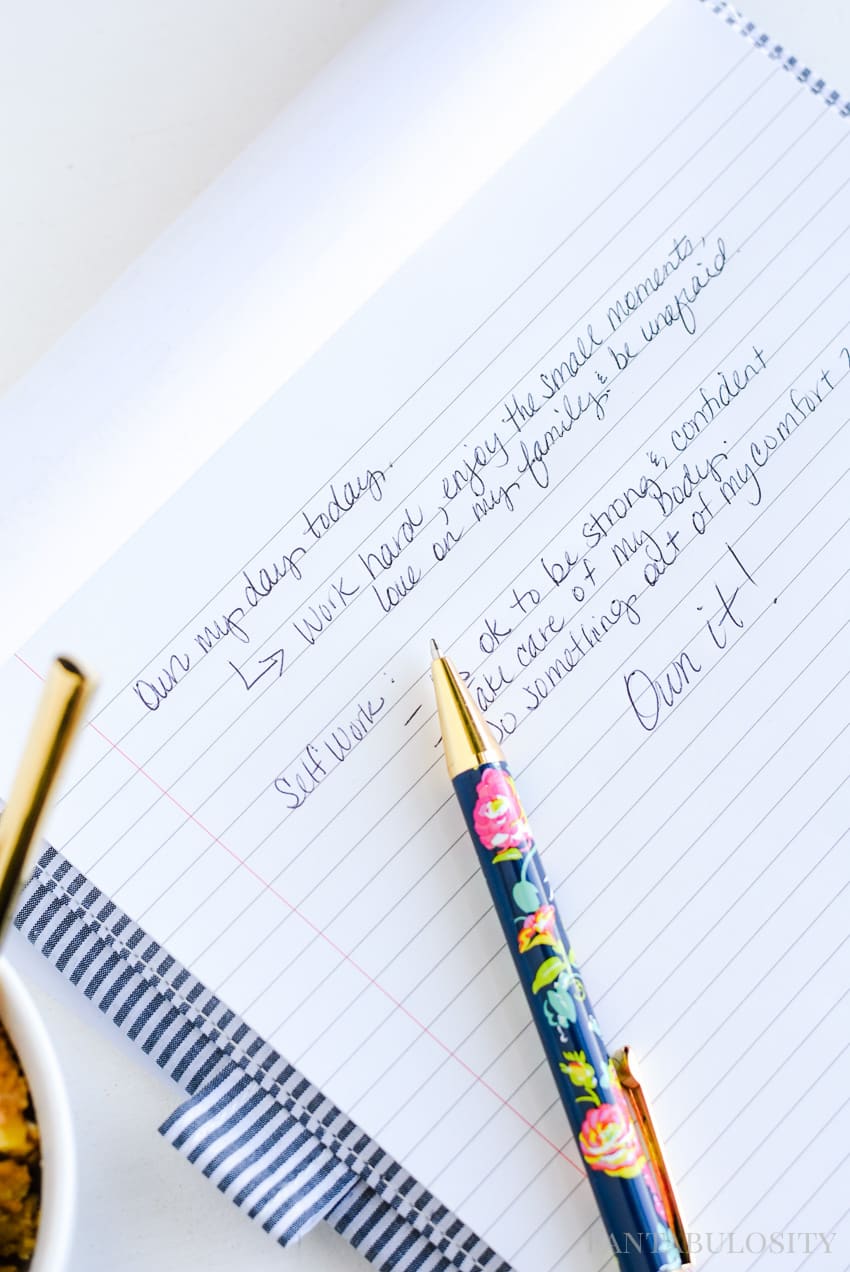 Own my day today.
↳ Work hard, enjoy the small moments,
love on my family, & be unafraid.
Self Work:
- ok to be strong & confident
- take care of my Body.
Do something out of my comfort
Own it!
ANTABULOSITY